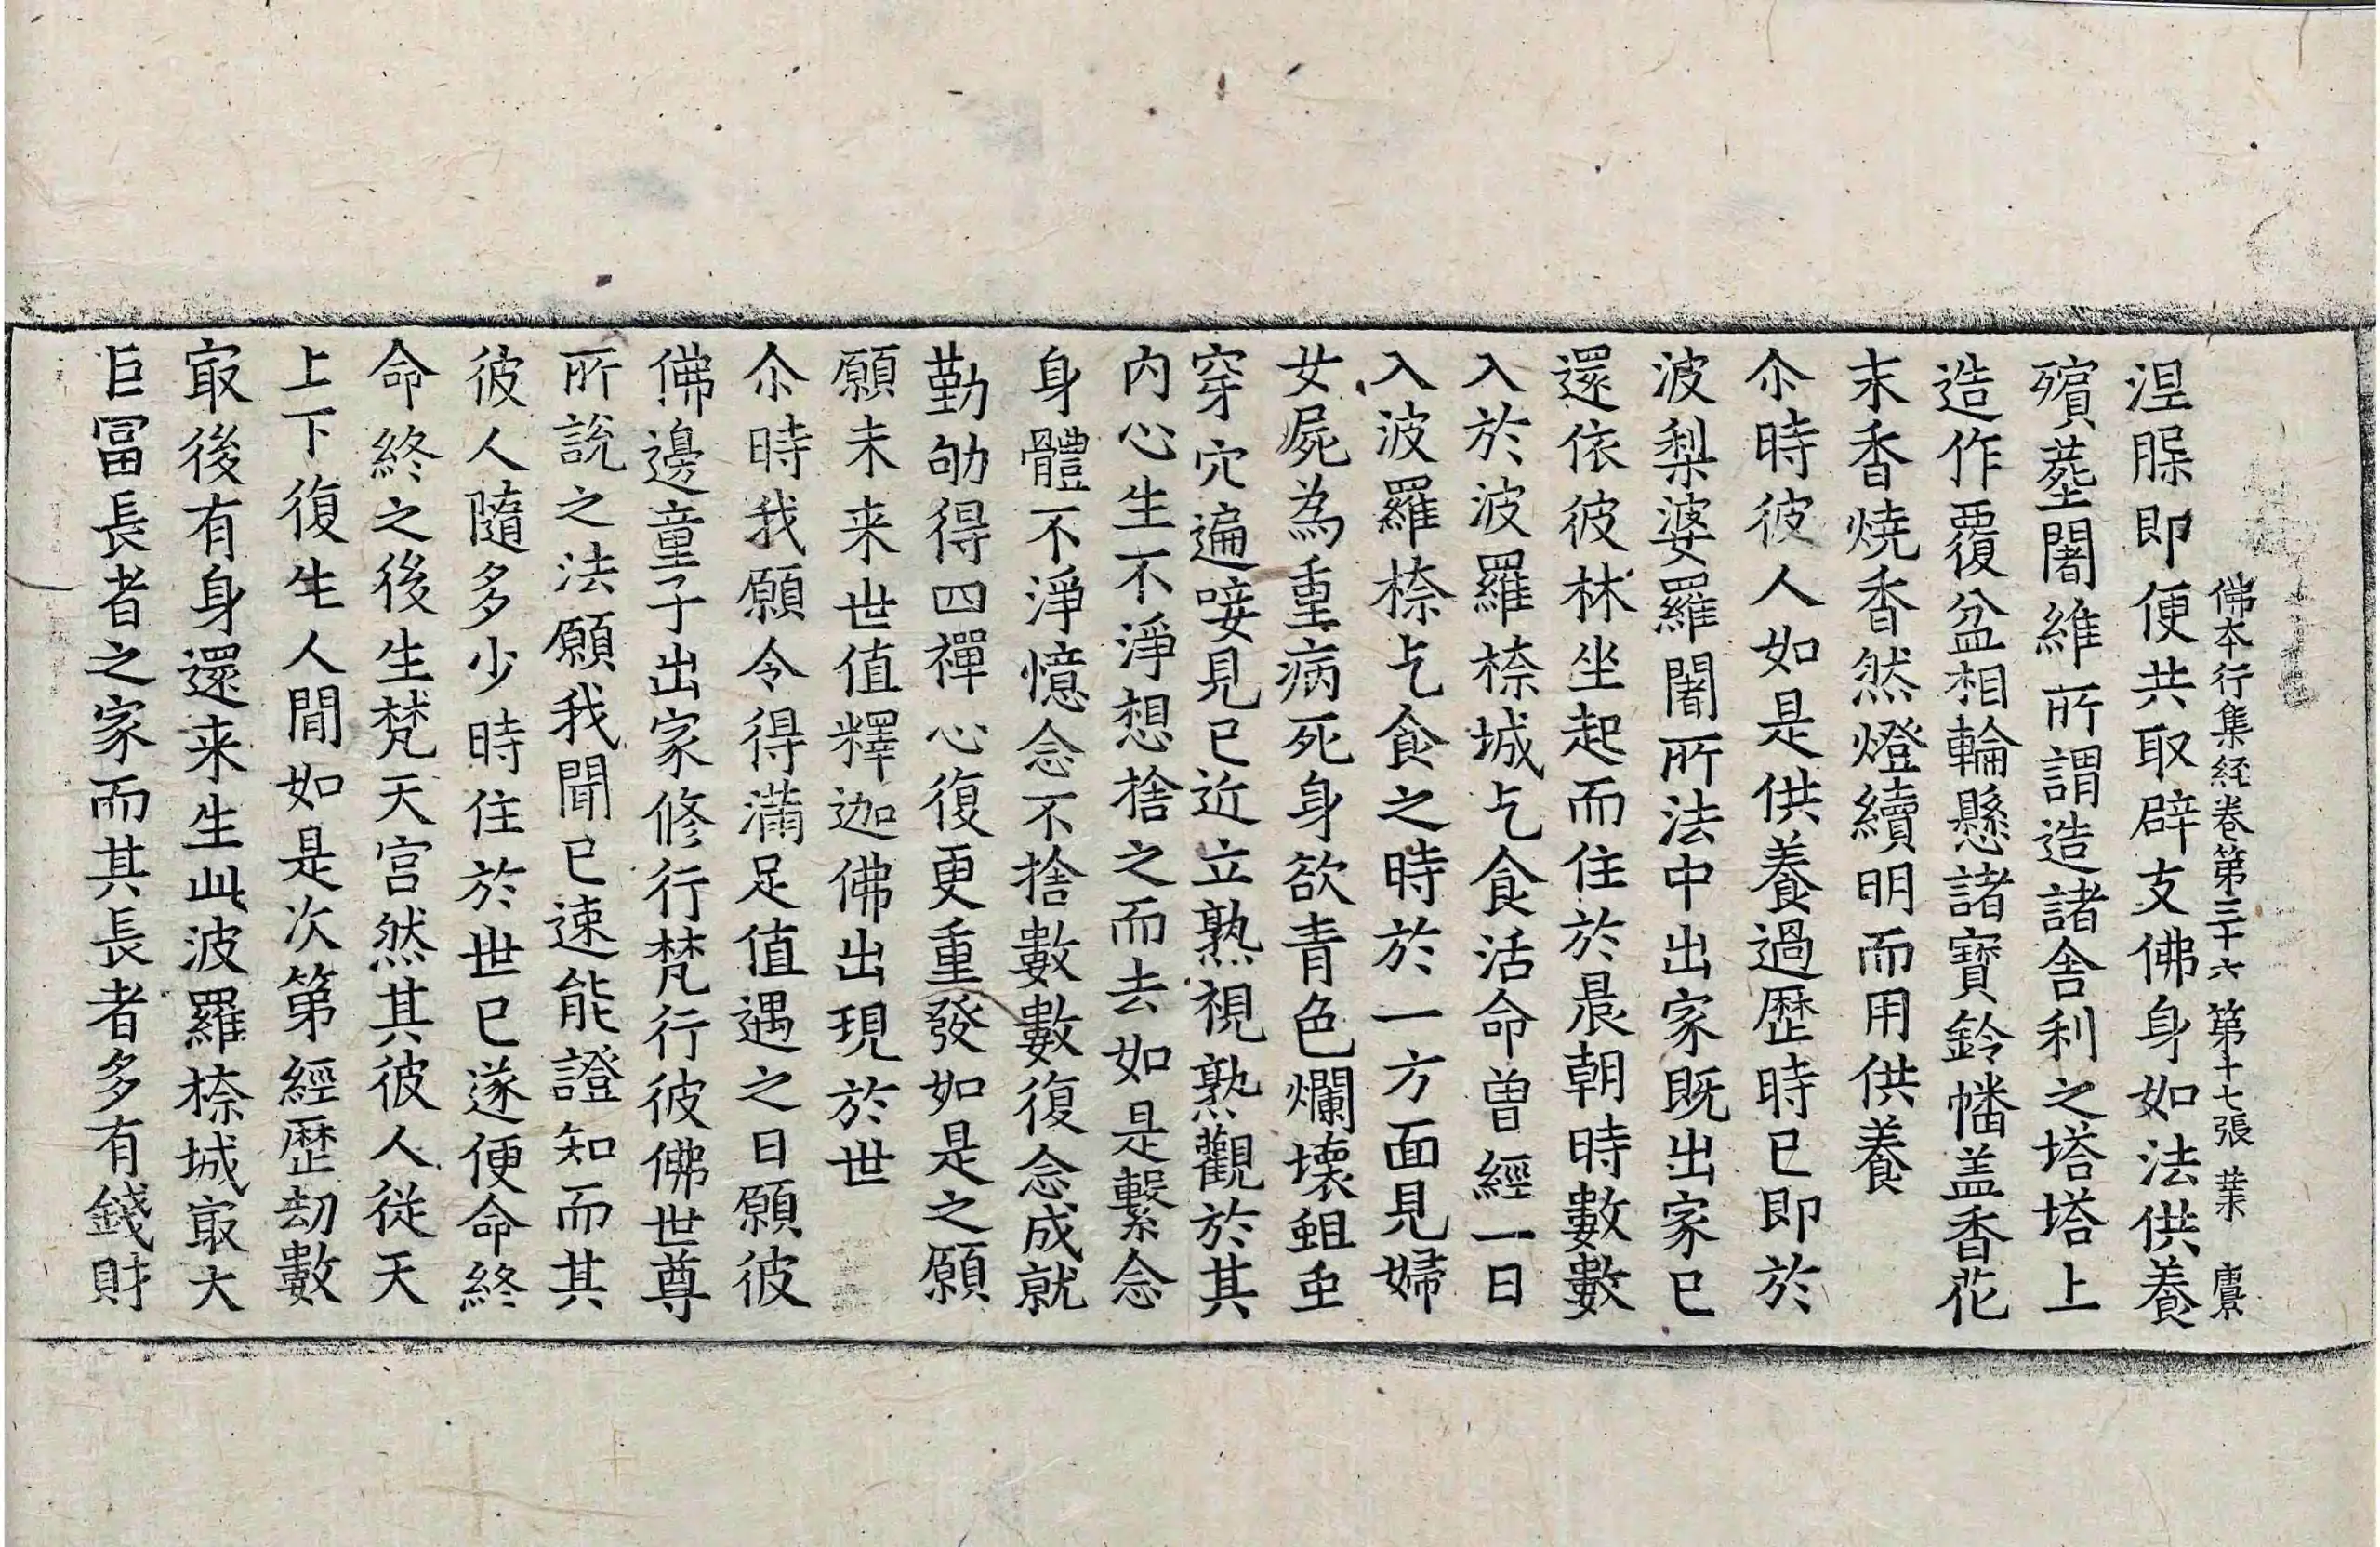 佛本行集経卷第三十六 第十七張 𦵏 賡
涅腺即便共取辟支佛身如法供養
殯塟闍維所謂造諸舍利之塔塔上
造作覆盆相輪懸諸寶鈴幡盖香花
末香燒香然燈續明而用供養
尒時彼人如是供養過歷時已即於
波梨婆羅闍所法中出家既出家已
還依彼林坐起而住於晨朝時數數
入於波羅㮈城乞食活命曽經一日
入波羅㮈乞食之時於一方面見婦
女屍為重病死身欲青色爛壊蛆虫
穿穴遍唼見已近立熟視熟觀於其
内心生不淨想捨之而去如是繋念
身體不淨憶念不捨數數復念成就
勤劬得四禪心復更重發如是之願
願未来世值釋迦佛出現於世
尒時我願令得滿足值遇之日願彼
佛邊童子出家修行梵行彼佛世尊
所說之法願我聞已速能證知而其
彼人隨多少時住於世已遂便命終
命終之後生梵天宫然其彼人従天
上下復生人間如是次第經歴劫數
㝡後有身還来生此波羅㮈城㝡大
巨冨長者之家而其長者多有錢財